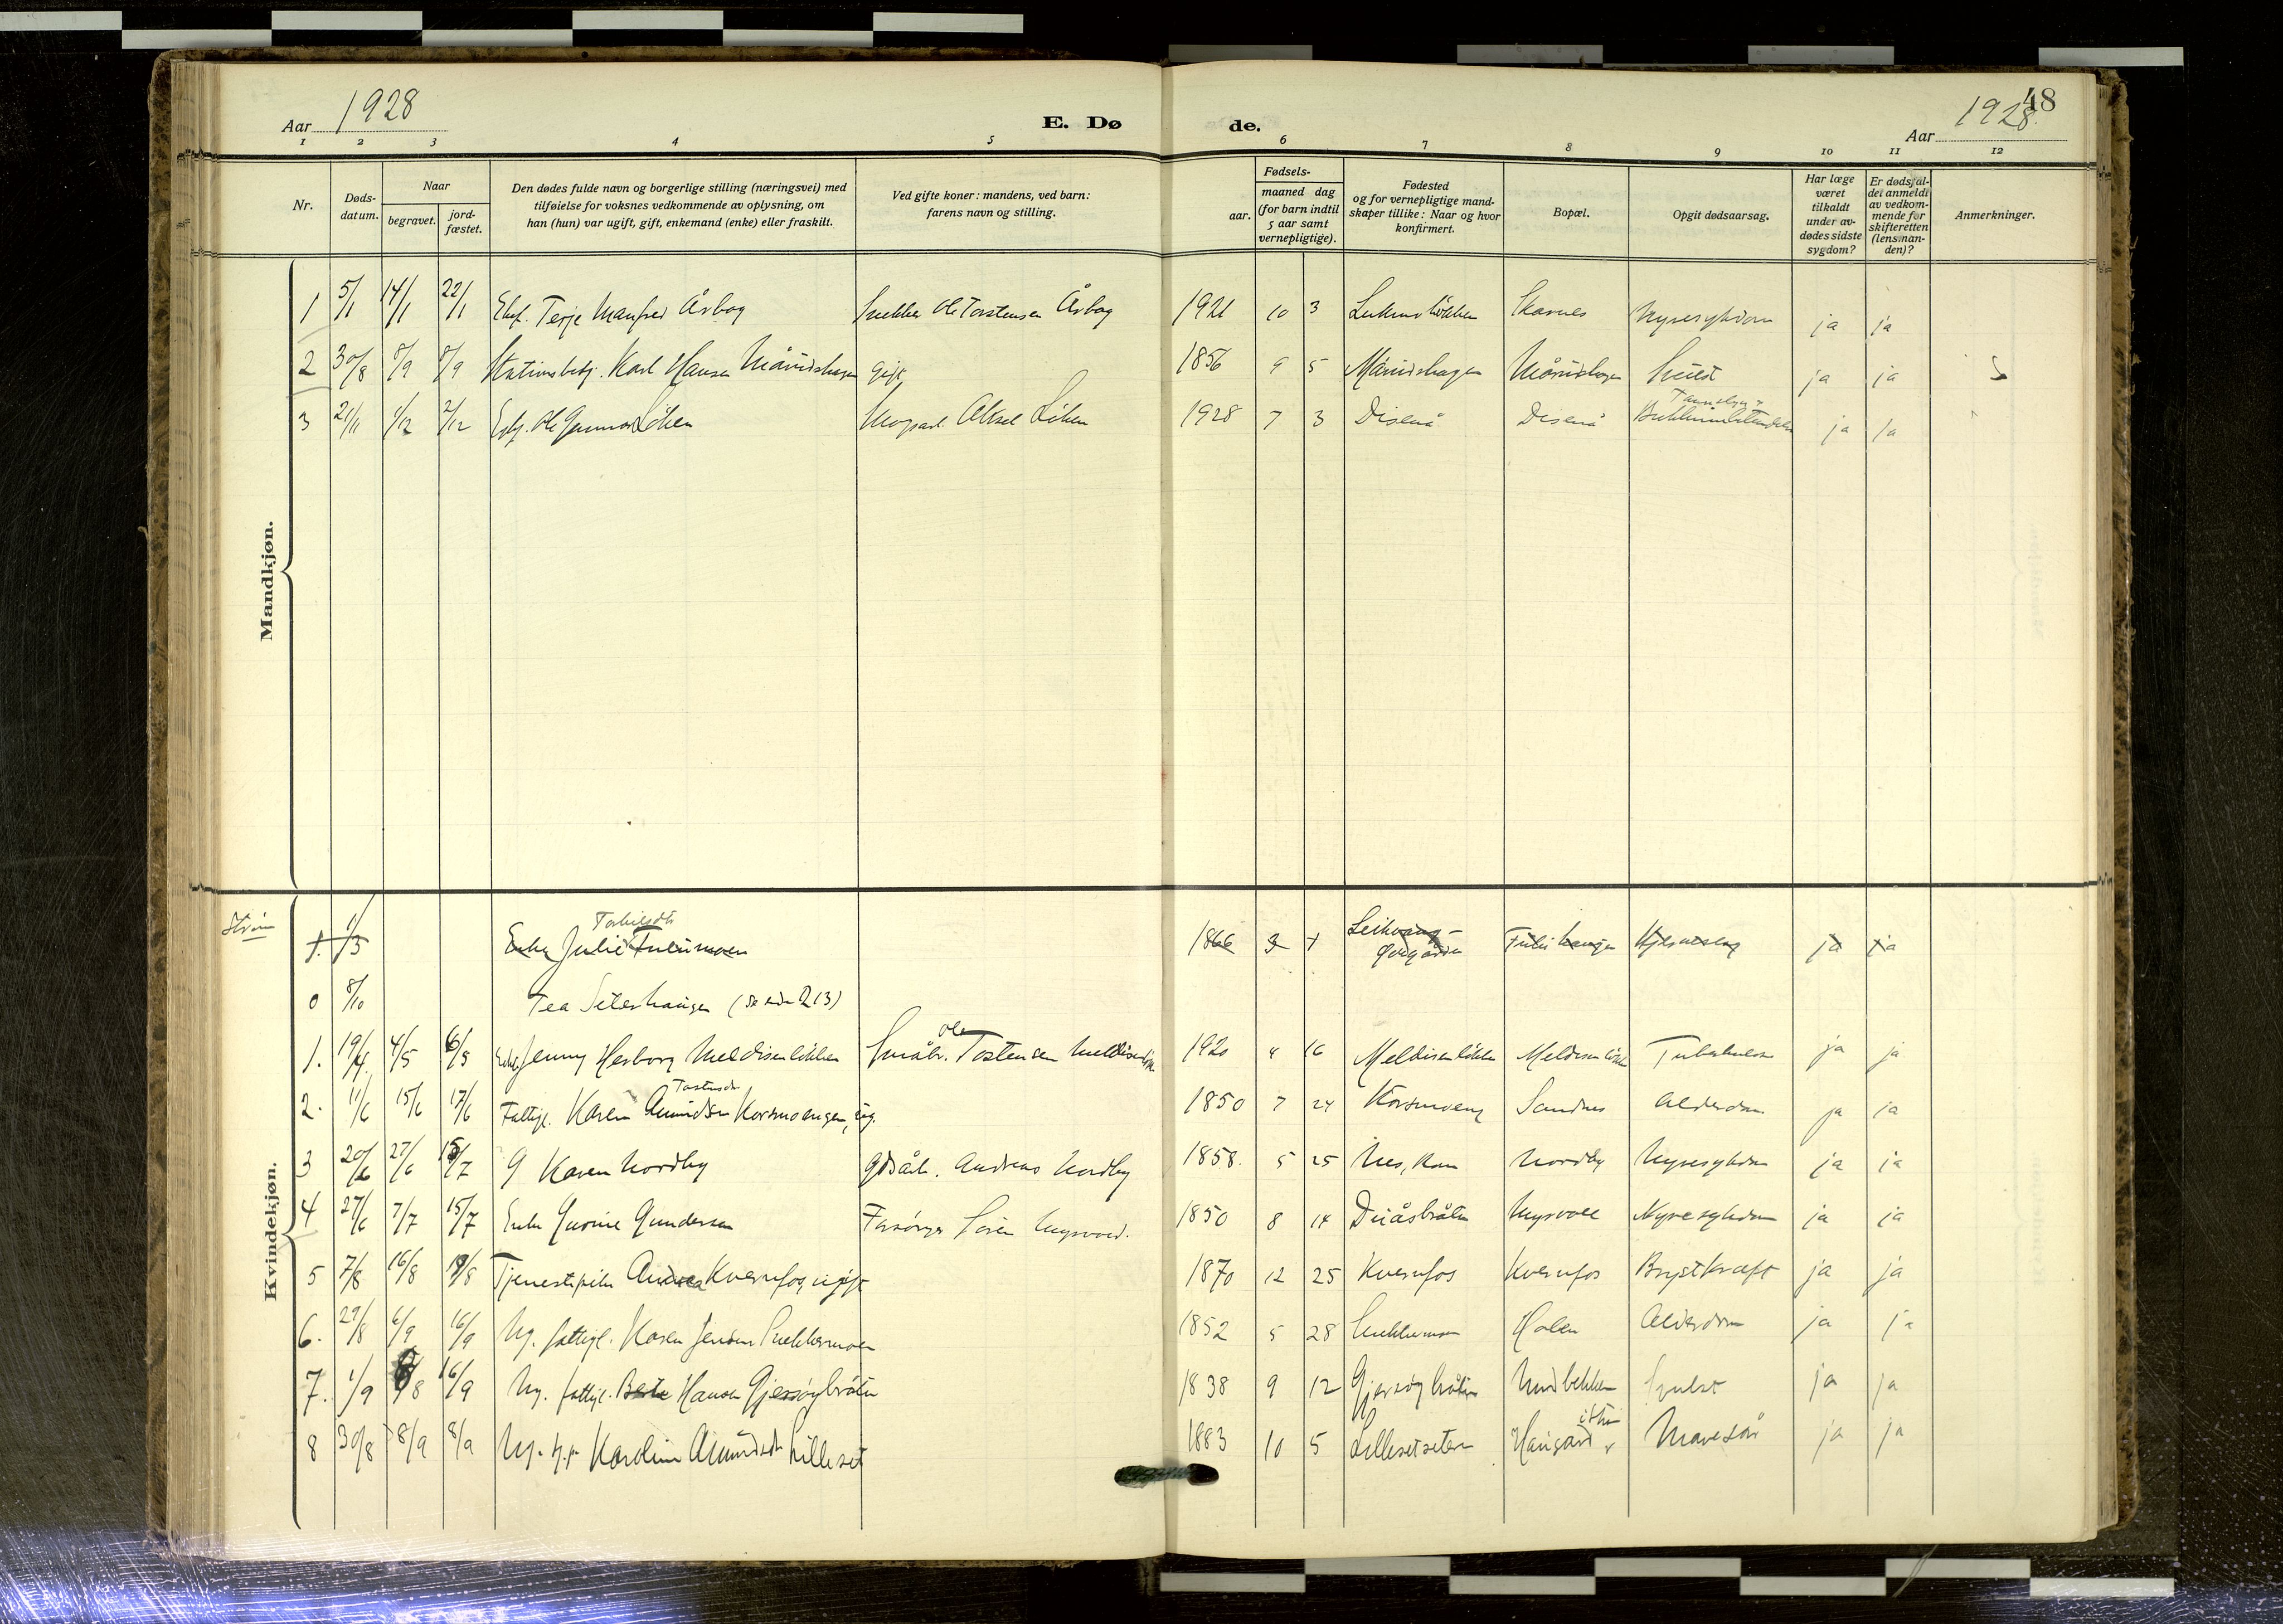 Aar 1928
E. Dø de.
Aar 1928
48
1 2 3 4 5 6 7 8 9 10 11 12
Nr.
Døds-
datum.
Naar
begravet.
jord-
fæstet.
Den dødes fulde navn og borgerlige stilling (næringsvei) med
tilføielse for voksnes vedkommende av oplysning, om
han (hun) var ugift, gift, enkemand (enke) eller fraskilt.
Ved gifte koner: mandens, ved barn:
farens navn og stilling.
Fødsels-
aar.
maaned dag
(for barn indtil
5 aar samt
vernepligtige).
Fødested
og for vernepligtige mand-
skaper tillike: Naar og hvor
konfirmert.
Bopæl.
Opgit dødsaarsag.
Har læge
været
tilkaldt
under av-
dødes sidste
sygdom?
Er dødsfal-
det anmeldt
av vedkom-
mende for
skifteretten
(lensman-
den)?
Anmerkninger.
Mandkjøn.
1 5/1 14/1 22/1 Terje Manfred Åsbog Snekker Ole Torstensen Åsbog 1921 10 3 Skarnes Nyresykdom ja ja
2 30/8 8/9 8/9 Stationsbetj. Karl Hansen gift 1856 9 5 ja ja
3 21/11 1/12 2/12 Ole Gunnar Löken Aksel Löken 1928 7 3 Disenå Disenå ja ja
Kvindekjøn.
1. 1/3 Torkilsdtr
Enke Julie 1866 3 ja ja
0 8/10 Tea Seterhaugen (se side 213)
1. 19/4 4/5 6/5 Jenny Herborg Meldisenlökken Småbr. Ole Tostensen 1920 4 16 Meldisenlökken Meldisenlökken ja ja
2. 11/6 15/6 17/6 Fattigl. Karen Amundsen Tostensdtr Korsmoengen, ug. 1850 7 24 Korsmoeng Sandnes Alderdom ja ja
3 20/6 27/6 15/7 G Karen Nordby Gdsarb. Andreas Nordby 1858. 5 25 Nes, Rom Nordby Nyresykdom ja ja
4 27/6 7/7 15/7 Enke Gurine Gundersen Forsörges Sören 1850 8 14 Nyresykdom ja ja
5 7/8 16/8 19/8 Tjenestepike Andrea Kvernfos, ugift 1870 12 25 Kvernfos Kvernfos Brystkræft ja ja
6. 27/8 6/9 16/9 Ug. fattigl. Karen Jensen Snekkermoen 1852 5 28 Holen Alderdom ja ja
7. 1/9 8 16/9 Ug. fattigl. Berte Hansen Gjersöybråten 1838 9 12 Gjersöybråten ja ja
8 30/8 8/9 8/9 Ug. Karoline Amundsdtr Lilleset 1883 10 5 Lillesetseteren Mavesår ja ja